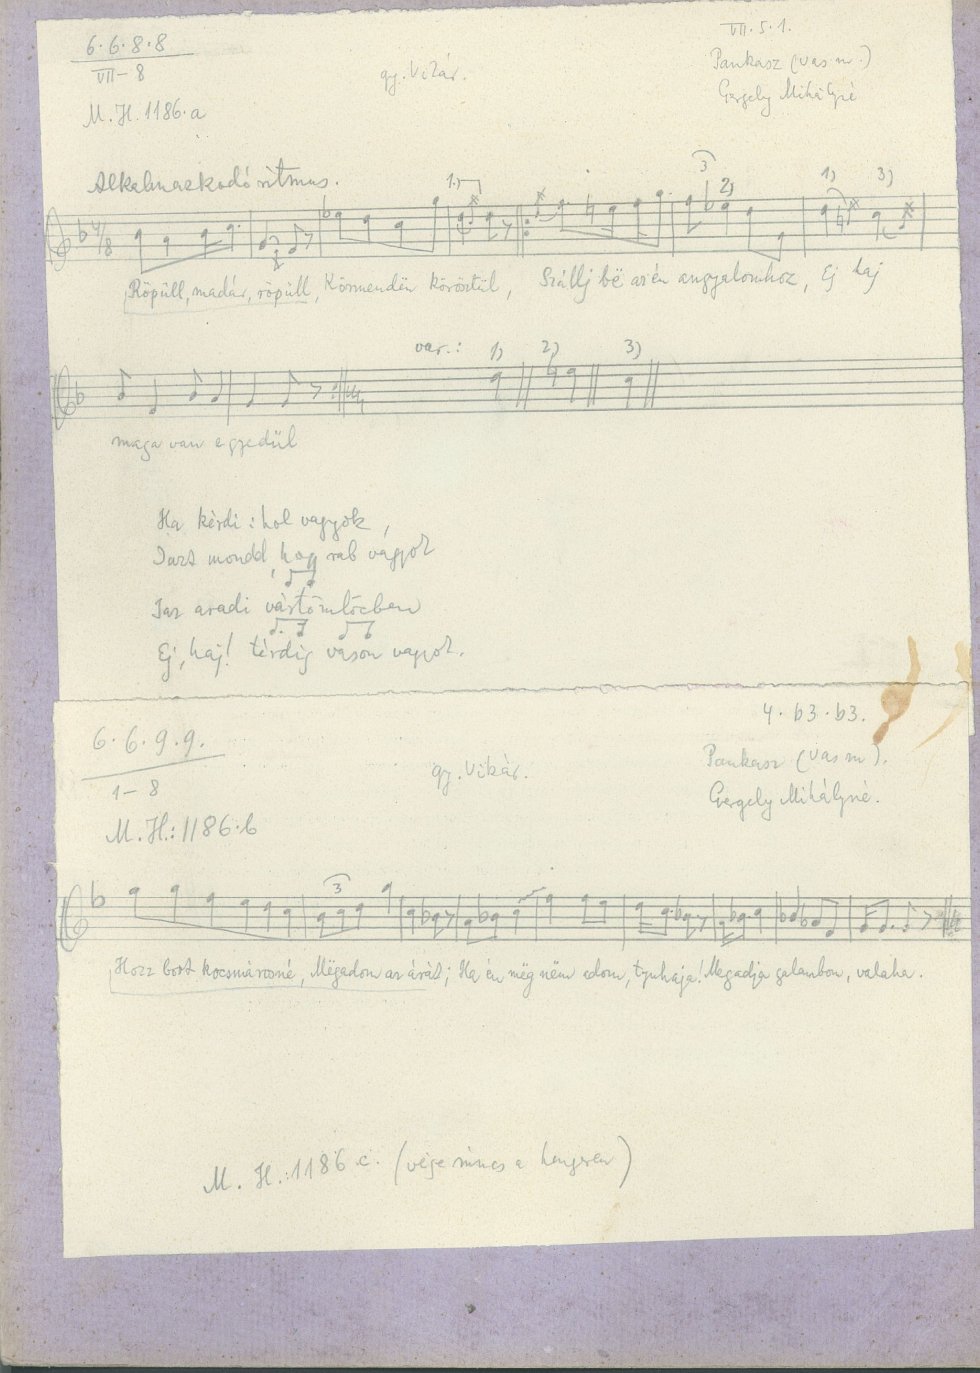 6·6·8·8
VII–8
M.H. 1186·a
gy. Vikár.
VII·5·1.
Pankasz (Vas m.)
Gergely Mihályné
Alkalmazkodó ritmus.
1.) 3 2) 1) 3)
4/8
Röpüll, madár, röpüll, Körmendën körösztül, Szállj bë az én angyalomhoz, Ej haj
var.: 1) 2) 3)
maga van egyedül
Ha kérdi: hol vagyok,
Iazt mondd, hogy rab vagyok
Iaz aradi vástömlöcben
Ej, haj! térdig vason vagyok.
6·6·9·9.
1–8
M.H.: 1186·b
gy. Vikár.
4·b3·b3.
Pankasz (Vas m).
Gergely Mihályné.
3
Hozz bort kocsmárosné, Mëgadom az árát; Ha én mëg nëm adom, tyuhaja! Megadja galambom, valaha.
M. H.: 1186 c. (vége nincs a hengeren)